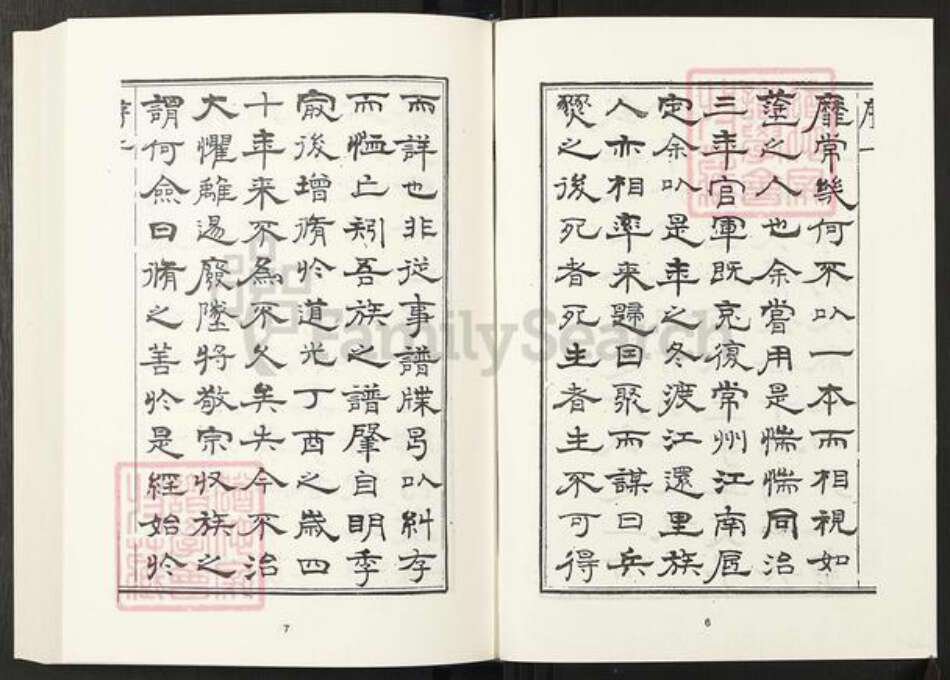 靡常幾何不㠯一本而相視如
塗之人也余嘗用是惴惴同治
三年官軍既克復常州江南底
定余㠯是年之冬渡江還里族
人亦相率來歸因聚而謀曰兵
燹之後死者死生者生不可得
6
而詳也非從事譜牒曷㠯糾存
而恤亡矧吾族之譜肇自明季
最後增脩於道光丁酉之歲四
十年來不為不久矣失今不治
大懼離逷廢墜將敬宗收族之
謂何僉曰脩之善於是經始於
7
FamilySearch